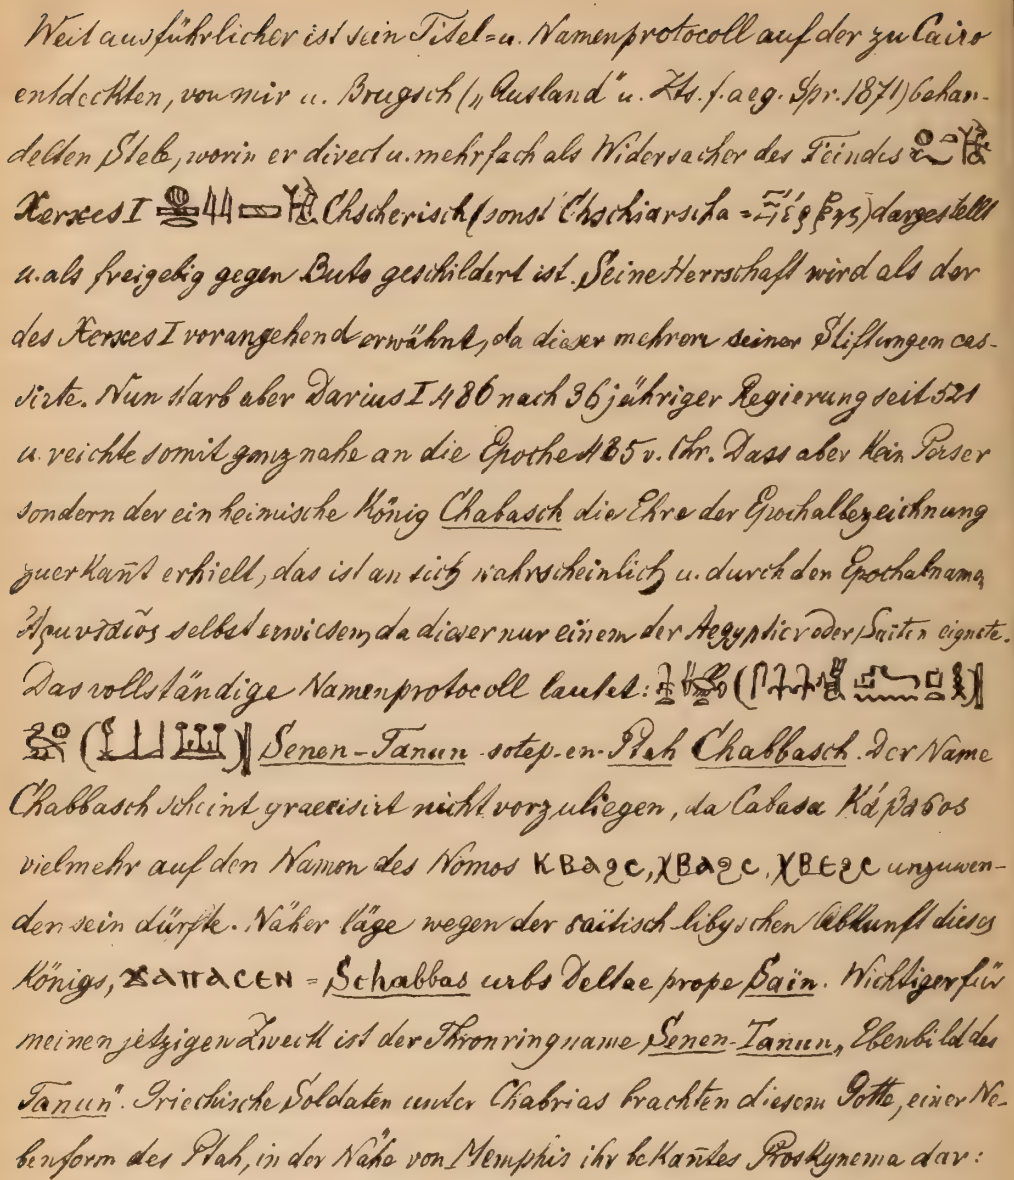 Weit ausführlicher ist sein Titel- u. Namenprotocoll auf der zu Cairo
entdeckten, von mir u. Brugsch („Ausland“ u. Zts. f. aeg. Spr. 1871) behan-
delten Stele, worin er direct u. mehrfach als Widersacher des Feindes
Xerxes I Chscherisch (sonst Chschiarscha = Ξέρξης) dargestellt
u. als freigebig gegen Buto geschildert ist. Seine Herrschaft wird als der
des Xerxes I vorangehend erwähnt, da dieser mehrere seiner Stiftungen cas-
sirte. Nun starb aber Darius I 486 nach 36jähriger Regierung seit 521
u. reichte somit ganz nahe an die Epoche 485 v. Chr. Dass aber kein Perser
sondern der einheimische König Chabasch die Ehre der Epochalbezeichnung
zuerkan̄t erhielt, das ist an sich wahrscheinlich u. durch den Epochalname
selbst erwiesen, da dieser nur einem der Aegyptier oder Saiten eignete.
Das vollständige Namenprotocoll lautet:
Senen-Tanun sotep-en-Ptah Chabbasch. Der Name
Chabbasch scheint graecisirt nicht vorzuliegen, da Cabasa Κάβασος
vielmehr auf den Namen des Nomos ⲔⲂⲀϨⲤ, ⲬⲂⲀϨⲤ, ⲬⲂⲈϨⲤ anzuwen-
den sein dürfte. Näher läge wegen der saïtisch-libyschen Abkunft dieses
Königs, ϪⲀⲠⲠⲀⲤⲈⲚ = Schabbas urbs Deltae prope Saïn. Wichtiger für
meinen jetzigen Zweck ist der Thronringname Senen-Tanun „Ebenbild des
Tanun“. Griechische Soldaten unter Chabrias brachten diesem Gotte, einer Ne-
benform des Ptah, in der Nähe von Memphis ihr bekan̄tes Proskynema dar: